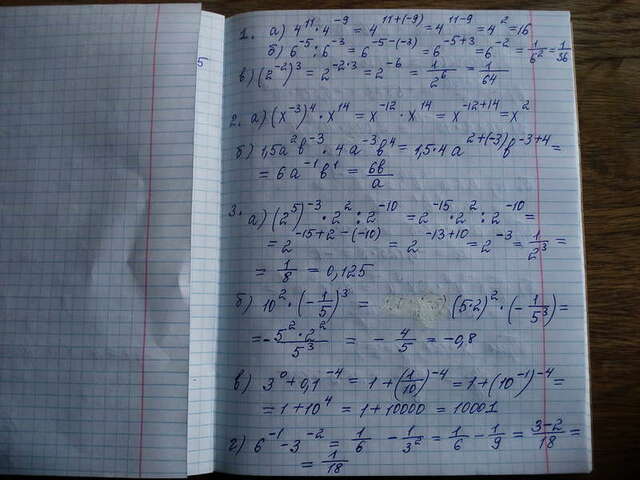 5
1. а) 4¹¹ · 4⁻⁹ = 4¹¹⁺⁽⁻⁹⁾ = 4¹¹⁻⁹ = 4² = 16
б) 6⁻⁵ : 6⁻³ = 6⁻⁵⁻⁽⁻³⁾ = 6⁻⁵⁺³ = 6⁻² = 1/6² = 1/36
в) (2⁻²)³ = 2⁻²·³ = 2⁻⁶ = 1/2⁶ = 1/64
2. а) (x⁻³)⁴ · x¹⁴ = x⁻¹² · x¹⁴ = x⁻¹²⁺¹⁴ = x²
б) 1,5a²b⁻³ · 4a⁻³b⁴ = 1,5·4 a²⁺⁽⁻³⁾b⁻³⁺⁴ =
= 6a⁻¹b¹ = 6b/a
3. а) (2⁵)⁻³ · 2² : 2⁻¹⁰ = 2⁻¹⁵ · 2² : 2⁻¹⁰ =
= 2⁻¹⁵⁺²⁻⁽⁻¹⁰⁾ = 2⁻¹³⁺¹⁰ = 2⁻³ = 1/2³ =
= 1/8 = 0,125
б) 10² · (-1/5)³ = (5·2)² · (-1/5³) =
= -5²·2²/5³ = -4/5 = -0,8
в) 3⁰ + 0,1⁻⁴ = 1 + (1/10)⁻⁴ = 1 + (10⁻¹)⁻⁴ =
= 1 + 10⁴ = 1 + 10000 = 10001
г) 6⁻¹ - 3⁻² = 1/6 - 1/3² = 1/6 - 1/9 = 3-2/18 =
= 1/18